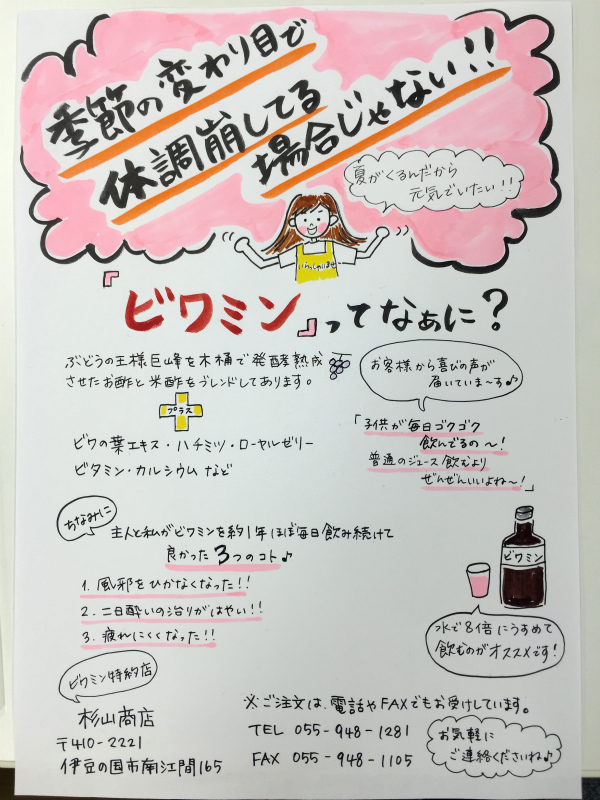 季節の変わり目で
体調崩してる
場合じゃない!!
夏がくるんだから
元気でいたい!!
いらっしゃいませ
『ビワミン』ってなぁに?
ぶどうの王様巨峰を木桶で発酵熟成
させたお酢と米酢をブレンドしてあります。
プラス
ビワの葉エキス・ハチミツ・ローヤルゼリー
ビタミン・カルシウム など
お客様から喜びの声が
届いていま〜す♪
「子供が毎日ゴクゴク
飲んでるの〜!
普通のジュース飲むより
ぜんぜんいいよね〜!」
ちなみに
主人と私がビワミンを約1年ほぼ毎日飲み続けて
良かった3つのコト♪
1. 風邪をひかなくなった!!
2. 二日酔いの治りがはやい!!
3. 疲れにくくなった!!
ビワミン
水で8倍にうすめて
飲むのがオススメです!
ビワミン特約店
杉山商店
〒410-2221
伊豆の国市南江間165
※ご注文は、電話やFAXでもお受けしています。
TEL 055-948-1281
FAX 055-948-1105
お気軽に
ご連絡くださいね♪